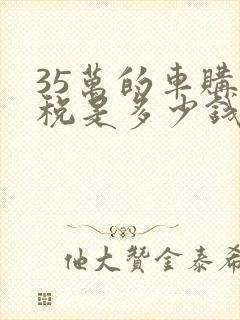 35萬的車購
稅是多少錢
他大贊金泰希